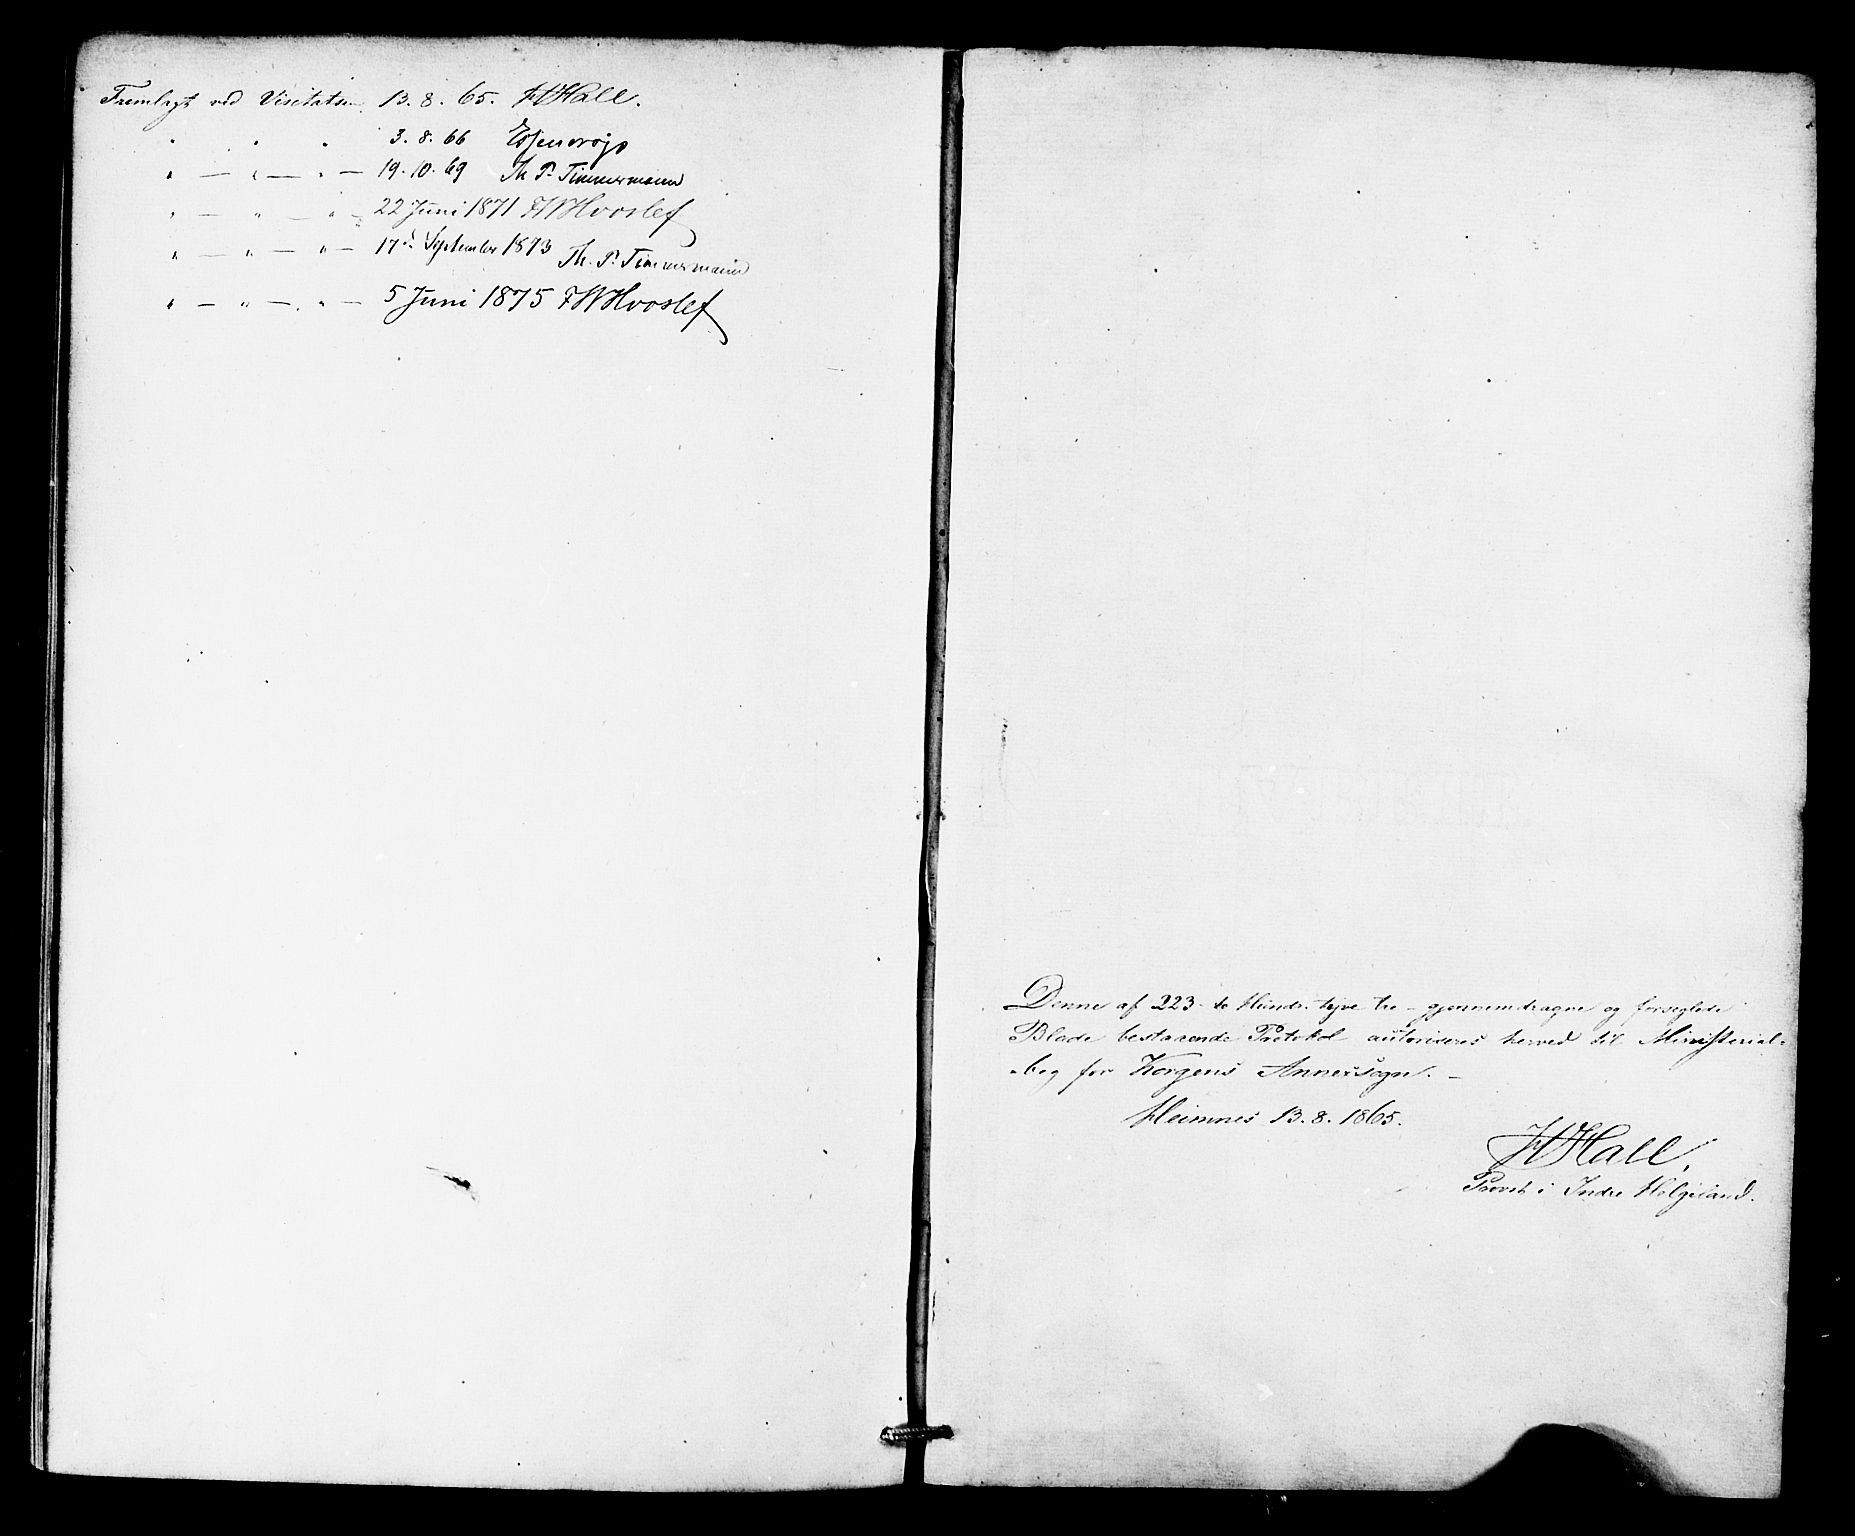 Fremlagt ved Visitatsen 13. 8. 65. FHall.
" " " 3. 8. 66 Essendrop
" — " — " — 19. 10. 69 Th P. Timmermann
" — " — " — 22 Juni 1871 FWHvoslef
" — " — " — 17d September 1873 Th. P. Timmermann
" — " — " — 5 Juni 1875 FWHvoslef
Denne af 223 - to Hundr. tyve tre - gjennemdragne og forseglede
Blade bestaaende Protokol autoriseres herved til Ministerial-
-bog for Korgens Annexsogn. —
Hemnes 13. 8. 1865.
FHall.
Provst i Indre Helgeland.